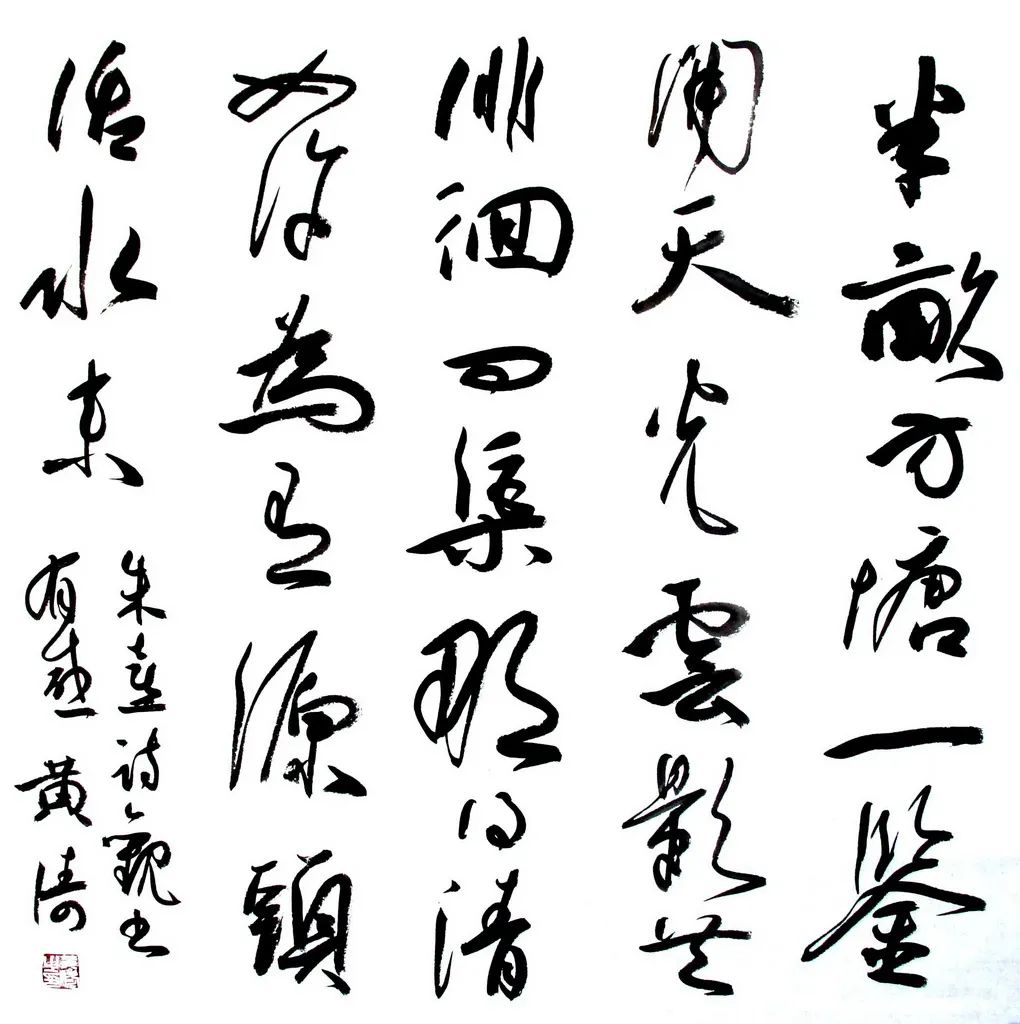 半畝方塘一鉴
開天光雲影共
徘徊問渠那得清
如許為有源頭
活水來
朱熹诗觀书
有感 黄